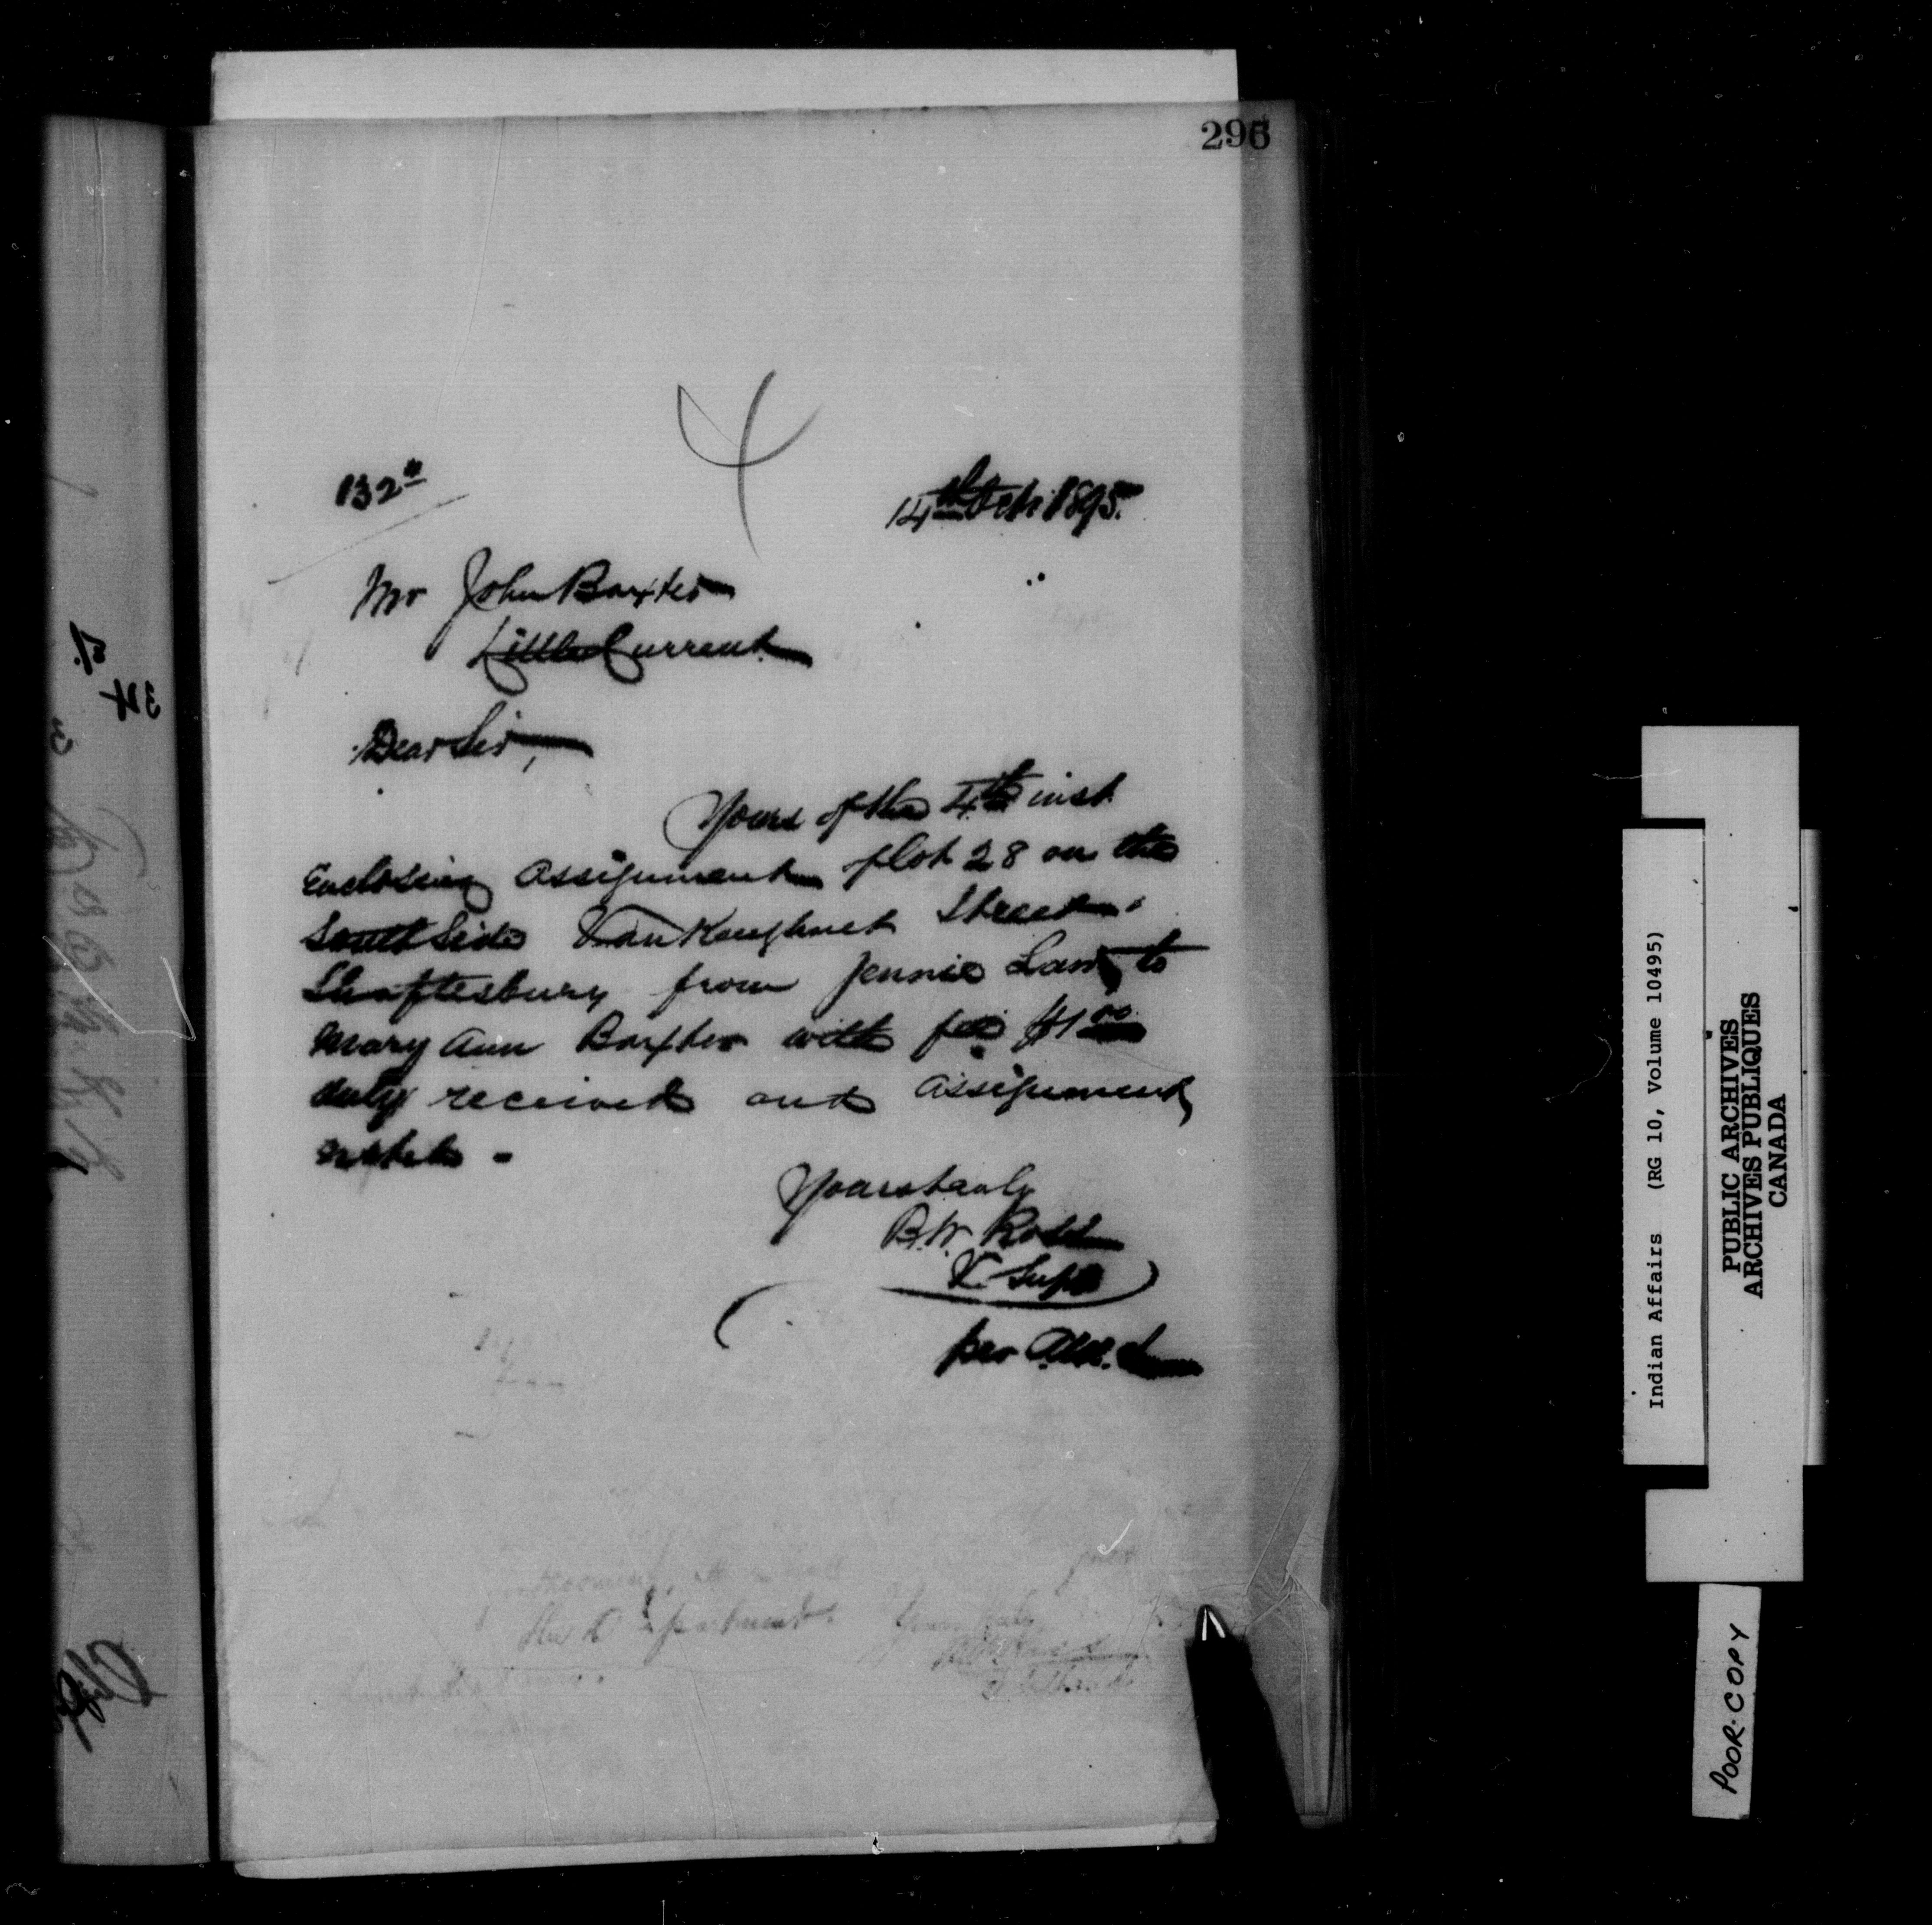 296
132
14th Feb 1895.
Mr John Baxter
Little Current
Dear Sir,
Yours of the 4th inst
Enclosing assignment of lot 28 on the
South Side VanKoughnet Street
Shaftesbury from Jennie Law to
Mary Ann Baxter with fee $1.00
duly received and assignment
Yours truly
B.W. Ross
V. Supt
per
Indian Affairs (RG 10, Volume 10495)
PUBLIC ARCHIVES
ARCHIVES PUBLIQUES
CANADA
POOR COPY